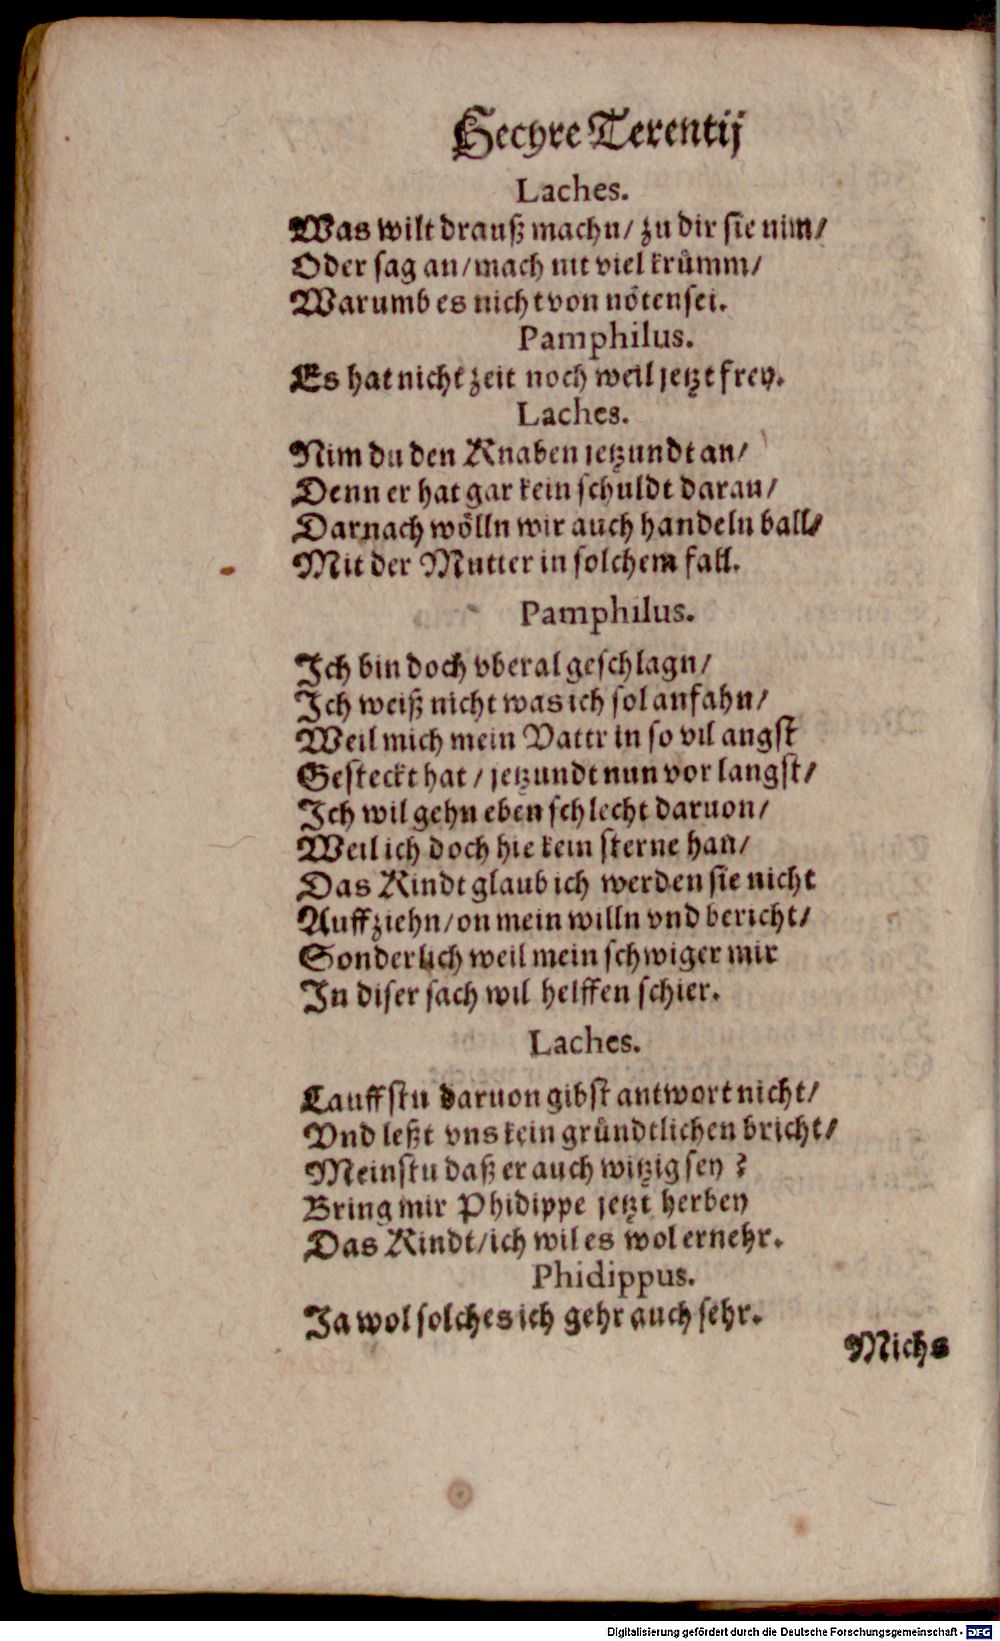 Hecyre Terentij
Laches.
Was wilt drauß machn/ zu dir sie nim/
Oder sag an/mach nit viel krům̃m/
Warumb es nicht von nöten sei.
Pamphilus.
Es hat nicht zeit noch weil jetzt frey.
Laches.
Nim du den Knaben jetzundt an/
Denn er hat gar kein schuldt daran/
Darnach wölln wir auch handeln ball/
Mit der Mutter in solchem fall.
Pamphilus.
Ich bin doch vberal geschlagn/
Ich weiß nicht was ich sol anfahn/
Weil mich mein Vattr in so vil angst
Gesteckt hat / jetzundt nun vor langst/
Ich wil gehn eben schlecht daruon/
Weil ich doch hie kein sterne han/
Das Kindt glaub ich werden sie nicht
Auffziehn/on mein willn vnd bericht/
Sonderlich weil mein schwiger mir
In diser sach wil helffen schier.
Laches.
Lauffstu daruon gibst antwort nicht/
Vnd leßt vns kein gründtlichen bricht/
Meinstu daß er auch witzig sey ?
Bring mir Phidippe jetzt herbey
Das Kindt/ich wil es wol ernehr.
Phidippus.
Ja wol solches ich gehr auch sehr.
Michs
Digitalisierung gefördert durch die Deutsche Forschungsgemeinschaft - DFG